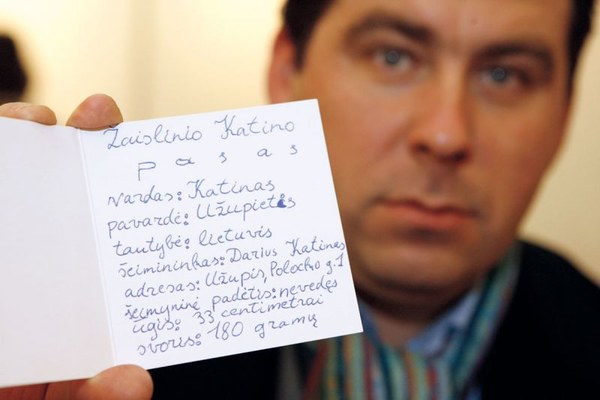 Žaislinio Katino
pasas
vardas: Katinas
pavardė: Užupietis
tautybė: lietuvis
šeimininkas: Darius Katinas
adresas: Užupis, Polocko g. 1
šeimyninė padėtis: nevedęs
ūgis: 33 centimetrai
svoris: 180 gramų